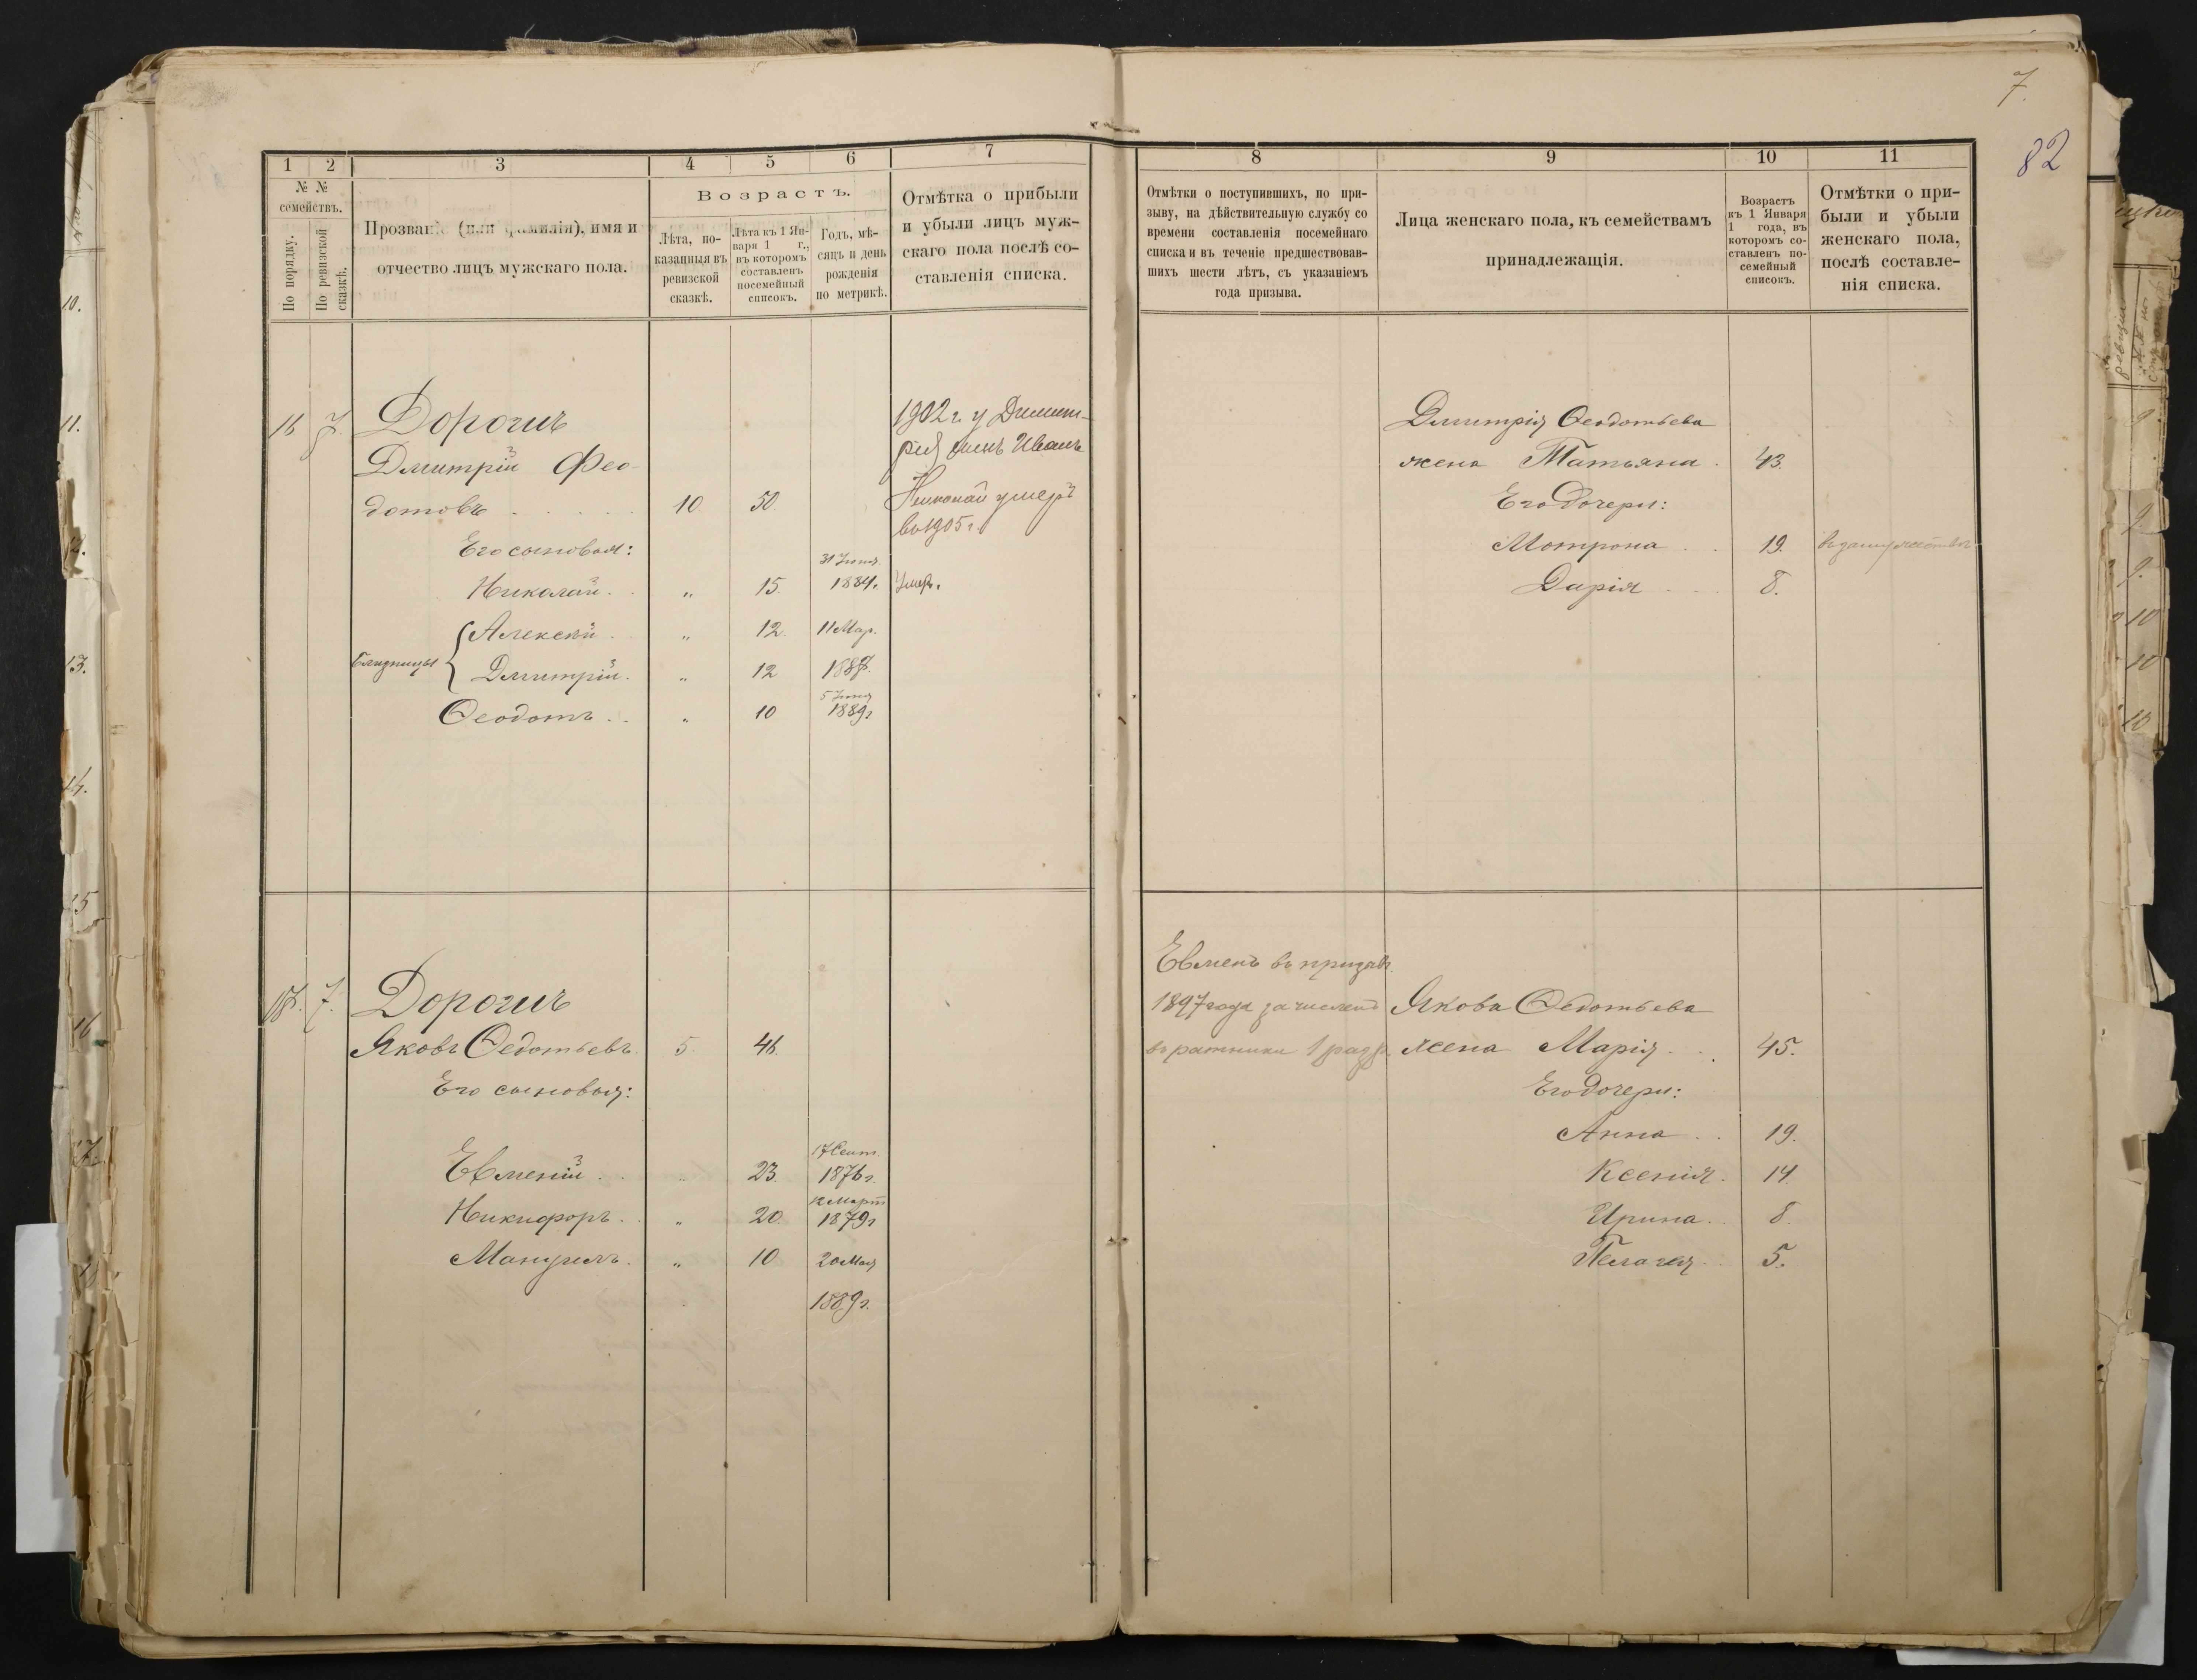 7.
82
1
2
3
4
5
6
7
№ №
семействъ.
По порядку.
По ревизской
сказкѣ.
Прозваніе (или фамилія), имя и
отчество лицъ мужскаго пола.
Возрастъ.
Лѣта, по-
казанныя въ
ревизской
сказкѣ.
Лѣта къ 1 Ян-
варя 1 г.,
въ которомъ
составленъ
посемейный
списокъ.
Годъ, мѣ-
сяцъ и день
рожденія
по метрикѣ.
Отмѣтка о прибыли
и убыли лицъ муж-
скаго пола послѣ со-
ставленія списка.
16 7 Дорогиъ
Дмитрій Фео-
дотовъ 10 50
Его сыновья:
31 Іюля
Николай " 15. 1884. Умеръ.
Близницы
Алексѣй " 12. 11 Мар.
Дмитрій " 12 1887.
5 Іюня
Ѳеодотъ " 10 1889 г
1902 г. у Димит-
рія сынъ Иванъ
Николай умеръ
въ 1905 г.
17. 7. Дорогиъ
Яковъ Ѳедотьевъ. 5. 46.
Его сыновья:
17 Сент.
Евменій " 23. 1876 г.
12 Март
Никифоръ " 20. 1879 г
Мануилъ " 10 20 Мая
1889 г.
8
9
10
11
Отмѣтки о поступившихъ, по при-
зыву, на дѣйствительную службу со
времени составленія посемейнаго
списка и въ теченіе предшествовав-
шихъ шести лѣтъ, съ указаніемъ
года призыва.
Лица женскаго пола, къ семействамъ
принадлежащія.
Возрастъ
къ 1 Января
1 года, въ
которомъ со-
ставленъ по-
семейный
списокъ.
Отмѣтки о при-
были и убыли
женскаго пола,
послѣ составле-
нія списка.
Дмитрія Ѳеодотьева
жена Татьяна. 43.
Его дочери:
Мотрона 19.
Дарія 8.
Евменъ въ призывъ
1897 года зачисленъ
въ ратники 1 разр.
Якова Ѳедотьева
жена Марія 45.
Его дочери:
Анна 19.
Ксенія. 14
Ирина 8.
Пелагея 5.